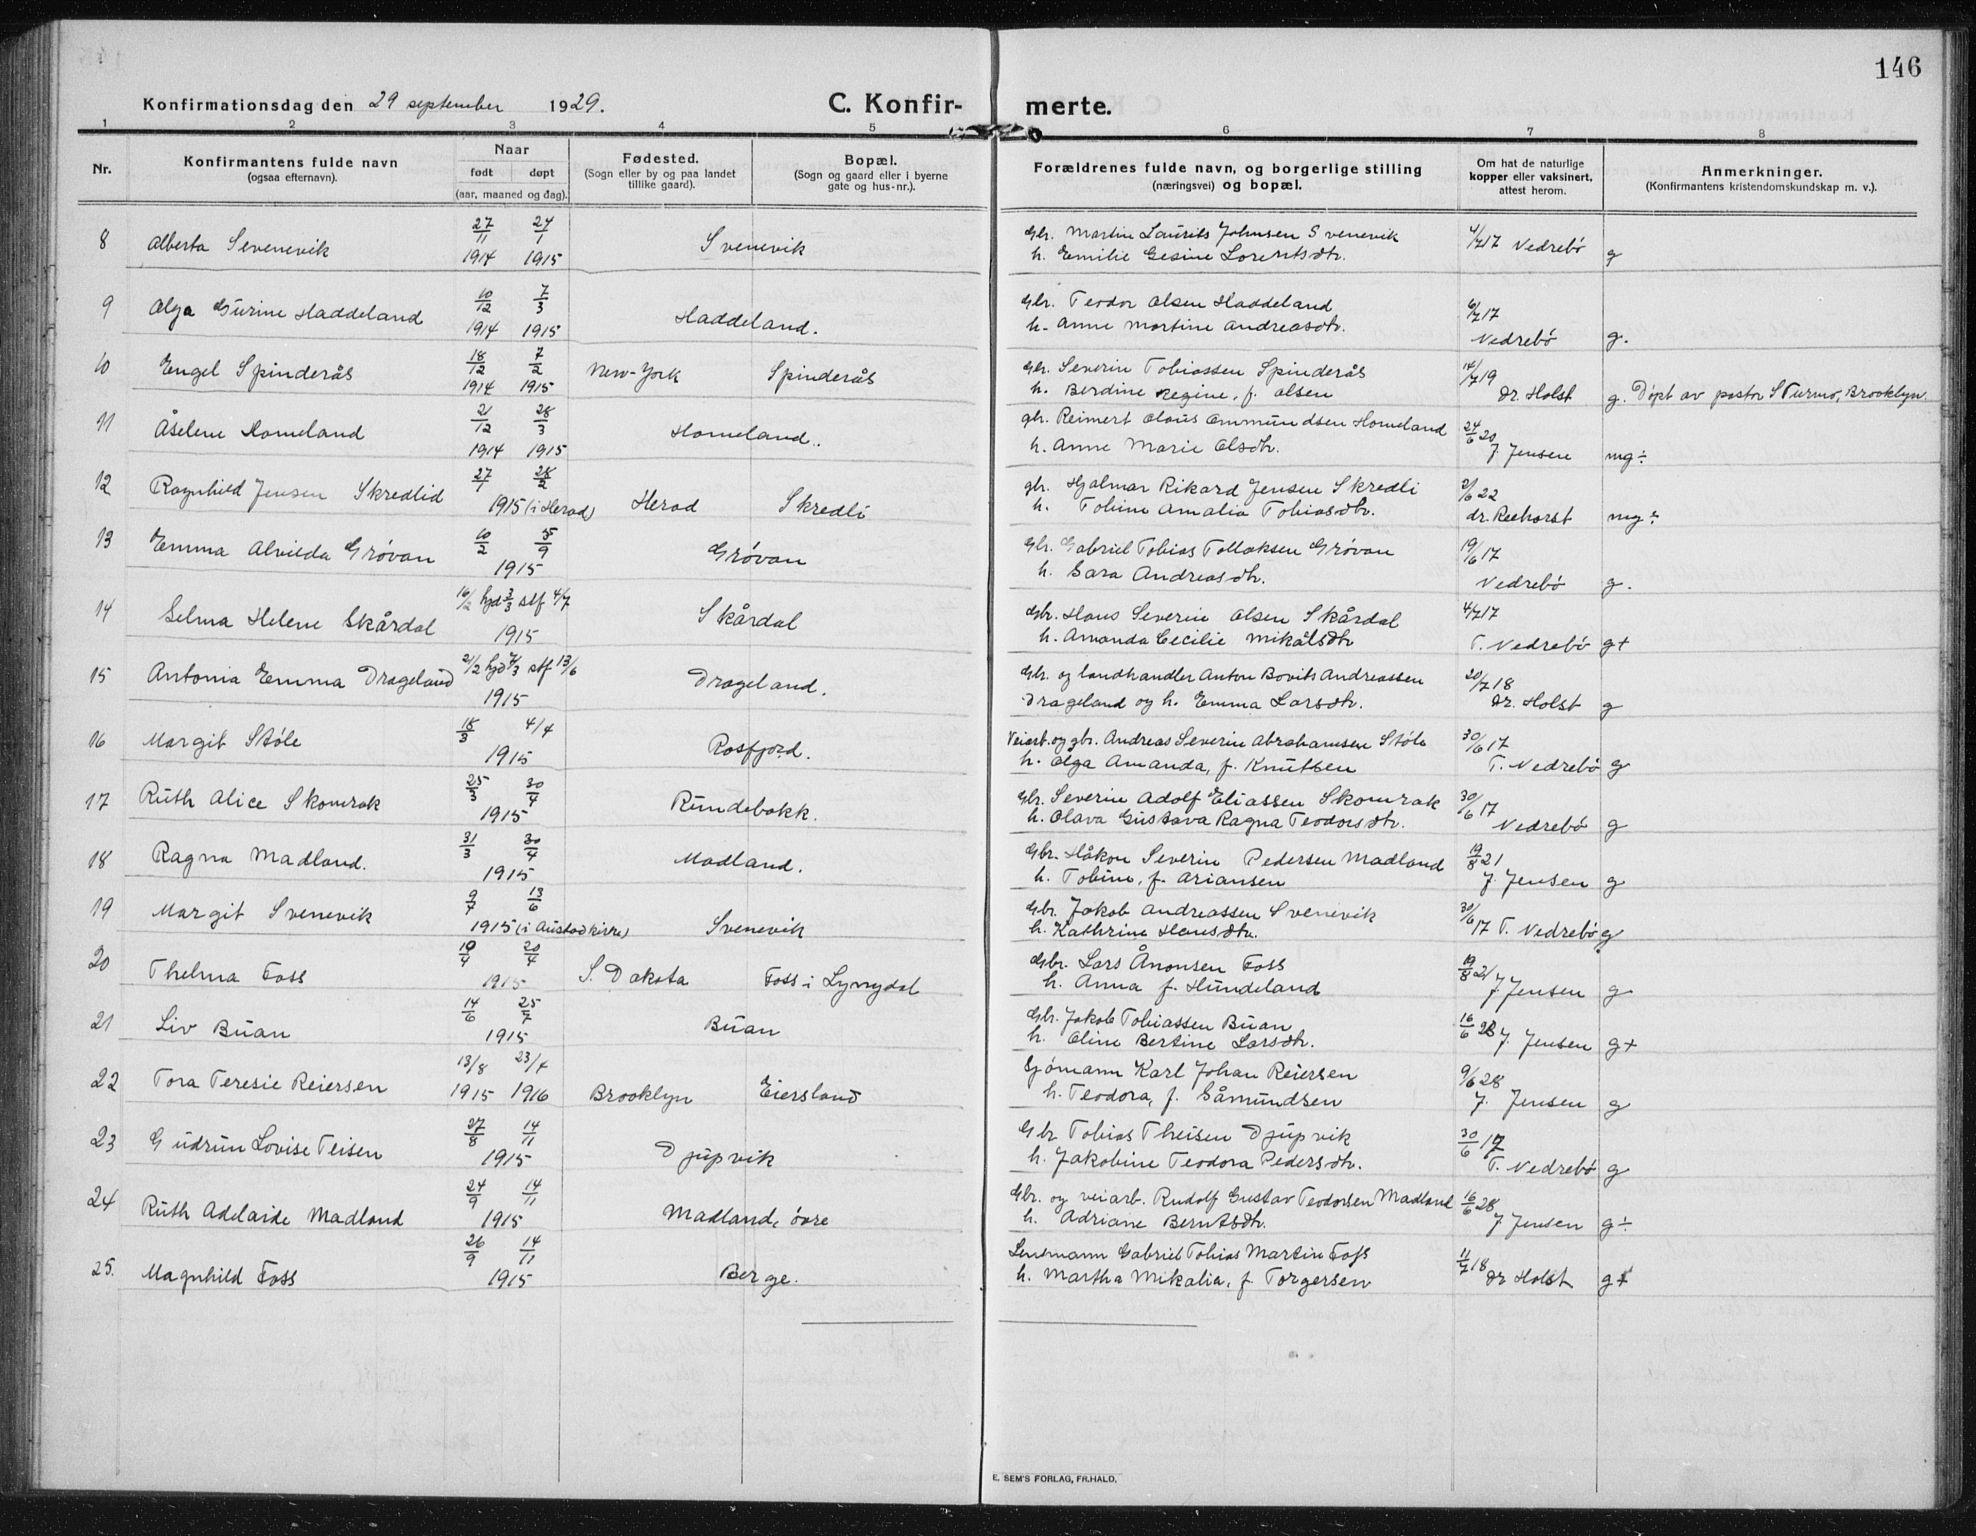 146
Konfirmationsdag den 29 september 1929. C. Konfir- merte.
1 2 3 4 5 6 7 8
Nr. Konfirmantens fulde navn (ogsaa efternavn). Naar født døpt (aar, maaned og dag). Fødested. (Sogn eller by og paa landet tillike gaard). Bopæl. (Sogn og gaard eller i byerne gate og hus-nr.). Forældrenes fulde navn, og borgerlige stilling (næringsvei) og bopæl. Om hat de naturlige kopper eller vaksinert, attest herom. Anmerkninger. (Konfirmantens kristendomskundskap m. v.).
8 Alberta Svenevik 27/11 1914 24/1 1915 Svenevik Gbr. Martin Laurits Johnsen Svenevik 4/7 17 Vedrebö g
h. Emilie Gesine Lorentsdtr.
9 Olga Gurine Haddeland 10/12 1914 7/3 1915 Haddeland. Gbr. Teodor Olsen Haddeland 6/7 17
h. Anne Martine Andreasdtr. Vedrebö g.
10 Engel Spinderås 18/12 1914 7/2 1915 New-York Spinderås Gbr. Severin Tobiassen Spinderås 14/7 19
h. Berdine Regine, f. Olsen dr. Holst g. Döpt av pastor S Turmo, Brooklyn
11 Åselene Homeland 21/12 1914 28/3 1915 Homeland. gbr. Reimert Olaus Ommundsen Homeland 24/6 20
h. Anne Marie Olsdtr. J. Jensen mg÷
12 Ragnhild Jensen Skredlid 27/1 28/2 1915 (i Herad) Herad Skredli gbr. Hjalmar Rikard Jensen Skredli 2/6 22
h. Tobine Amalia Tobiasdtr. dr. Reehorst mg÷
13 Emma Alvilda Grövan 10/2 5/9 1915 Grövan Gbr. Gabriel Tobias Tollaksen Grövan 19/6 17
h. Sara Andreasdtr. Vedrebö g.
14 Selma Helene Skårdal 16/2 hjd 3/3 stf 4/7 1915 Skårdal Gbr. Hans Severin Olsen Skårdal 4/7 17
h. Amanda Cecilie Mikalsdtr T. Vedrebö g+
15 Antonia Emma Drageland 21/2 hjd 7/3 stf 13/6 1915 Drageland. Gbr. og landhandler Anton Bovits Andreassen 20/7 18
Drageland og h. Emma Larsdtr. dr. Holst g
16 Margit Stöle 18/3 4/4 1915 Rosfjord. Veiarb. og gbr. Andreas Severin Abrahamsen Stöle 30/6 17
h. Olga Amanda, f. Knutsen T. Vedrebö g
17 Ruth Alice Skomrak 25/3 30/4 1915 Rundebakk. Gbr. Severin Adolf Eliassen Skomrak 30/6 17
h. Olava Gustava Ragna Teodorsdtr. Vedrebö g
18 Ragna Madland. 31/3 30/4 1915 Madland. Gbr. Håkon Severin Pedersen Madland 19/8 21
h. Tobine, f. Ariansen J. Jensen g
19 Margit Svenevik 9/7 13/6 1915 (i Austad kirke) Svenevik Gbr. Jakob Andreassen Svenevik 30/6 17 T. Vedrebö g
h. Kathrine Hansdtr.
20 Thelma Foss 19/4 20/4 1915 S. Dakota Foss i Lyngdal Gbr. Lars Ånonsen Foss 19/8 21
h. Anna f. Hundeland J. Jensen g
21 Liv Buan 14/6 25/7 1915 Buan Gbr. Jakob Tobiassen Buan 16/6 28
h. Oline Bertine Larsdtr. J. Jensen g+
22 Tora Teresie Reiersen 13/8 1915 23/4 1916 Brooklyn Eiersland Sjömann Karl Johan Reiersen 9/6 28
h. Teodora, f. Såmundsen J. Jensen g
23 Gudrun Lovise Teisen 27/8 14/11 1915 Djupvik Gbr Tobias Theisen Djupvik 30/6 17
h. Jakobine Teodora Pedersdtr. T. Vedrebö g
24 Ruth Adelaide Madland 24/9 14/11 1915 Madland, övre Gbr. og veiarb. Rudolf Gustav Teodorsen Madland 16/6 28
h. Adriane Berntsdtr. J Jensen g÷
25. Magnhild Foss 26/9 14/11 1915 Berge. Lensmann Gabriel Tobias Martin Foss 11/7 18
h. Martha Mikalia, f. Torgersen dr Holst g+
E. SEM'S FORLAG, FR.HALD.